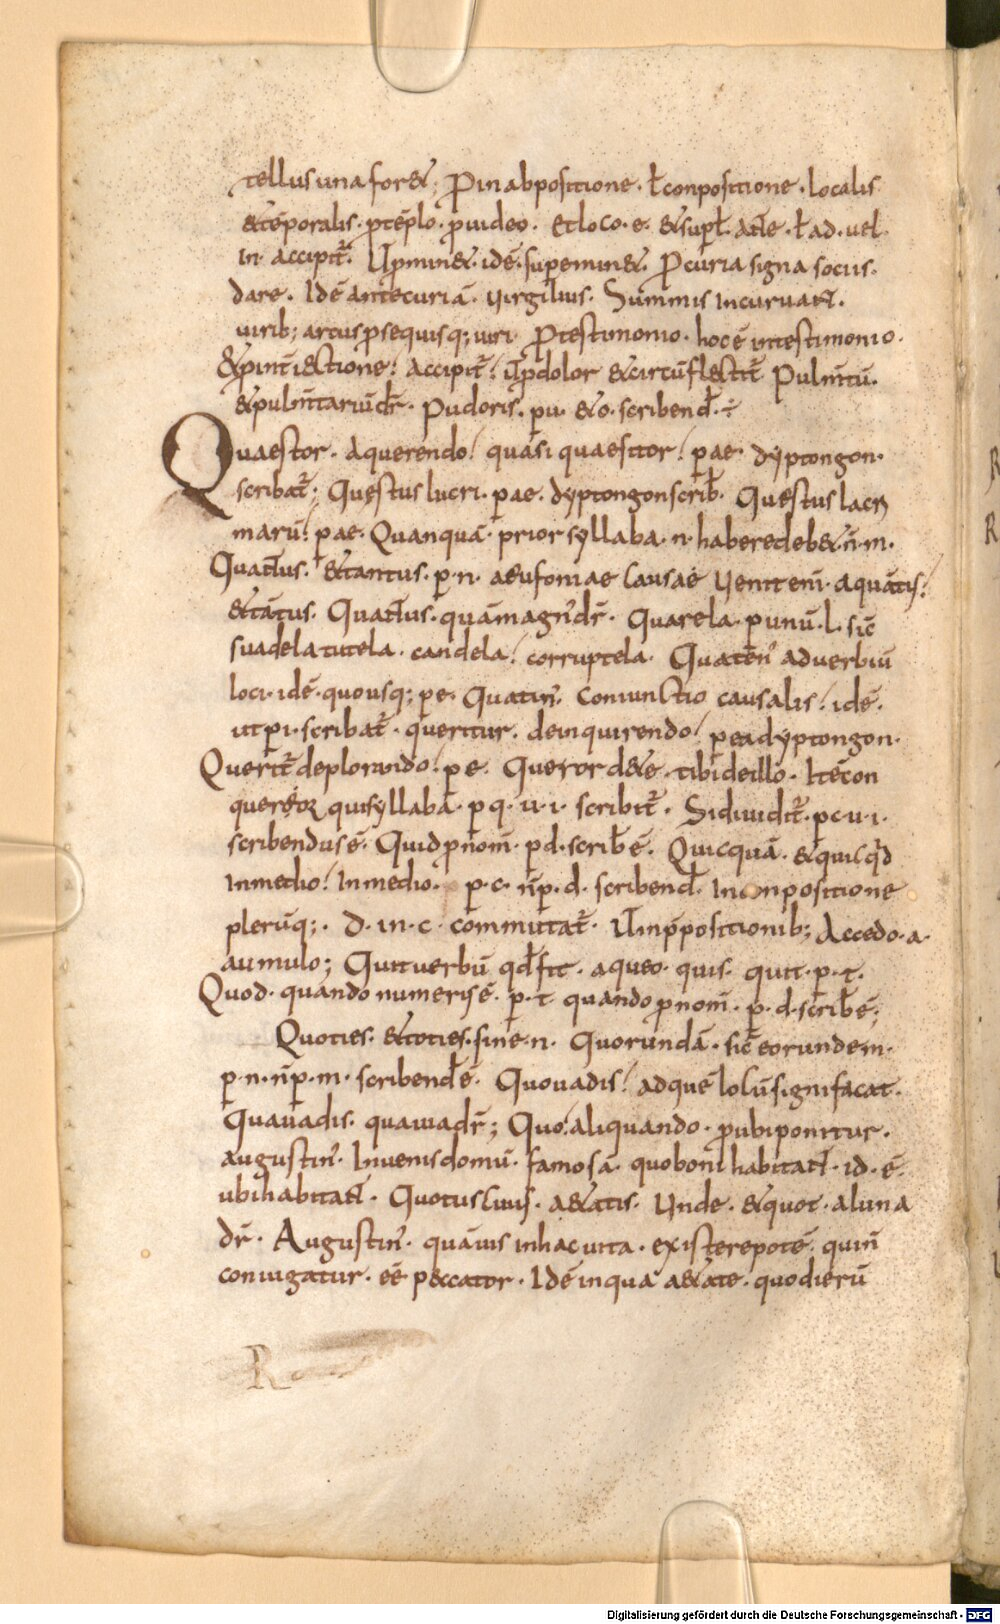 tellus una for&; Pro in abpositione · ł conpositione · localis
&tēporalis · ꝓtēplo · ꝓuideo · Et loco · e · & suꝑł · aNte · ł ad · uel
in · accipit̄ · Vt ꝓmin& · idē · suꝑemin& · Pro curia signa sociis ·
dare · Idē ante curiā · Virgilius · Summis incuruaNt ·
uirib; arcus ꝓ se quisq; uiri · Pro testimonio · hoc ē in testimonio ·
& ꝓ inti&ctione · accipit̄ · Vt ꝓ dolor & circūfl&tit̄ Pulmtū ·
& pulmtariū dr̄ · Pudoris · pu · & o · scribend̄ ÷
Quaestor · a querendo · quasi quaesitor · p ae · dyptongon ·
scribat̄; Questus lucri · p ae · dyptongon scrib̄ · Questus lacri
marū · p ae · Quanquā · prior syllaba · n · habere deb& · ñ · m ·
QuaNtus · & tantus · p · n · a eufoniae causa e Venit eni · a quātis ·
& tātus · QuaNtus · quā magn' dr̄ · Quarela · p unū · l · sic̄
suadela tutela · candela · corruptela · Quaten' aduerbiū
loci · idē · quousq; p e · Quatin' · coniunctio causalis · idē ·
ut p i · scribat̄ · queritur · de inquirendo · p ea dyptongon ·
Querit̄ deplorando · p e · Queror de te · tibi de illo · Itē con
queror qui syllabā · p q · u · i · scribit̄ · Si diuidit̄ · p c · u · i ·
scribendus ē · Quid ꝓnom̄ · p d · scrib̄ ē · Quicquā · & quicqd̄
in medio · In medio · p · c · n̄ p · d · scribend̄ · In conpositione
plerūq; · D · in · c · commutat̄ · Vt in ꝓpositionib; Accedo · a ·
aumulo; Quit uerbū qd̄ fit · a queo · quis · quit · p · t ·
Quod · quando numeris ē · p · t quando ꝓnom̄ · p · d · scrib̄ ē;
Quoties · & toties · sine · n · Quorundā · sic̄ eorundem ·
p · n · n̄ p · m · scribend̄ ē · Quo uadis · ad quē locū significat ·
Qua uadis · qua uia dr̄; Quo · aliquando · ꝓ ubi ponitur ·
augustin' · Inuenis domū · famosā · quo boni habitaNt · id · ē ·
ubi habitaNt · Quotus cuius · a&atis · Vnde · & quot · a luna
dr̄ · Augustin' · quāuis in hac uita · existere potē · quin
coniugatur · ēē peccator · Idē in qua a&ate · quo dierū
R